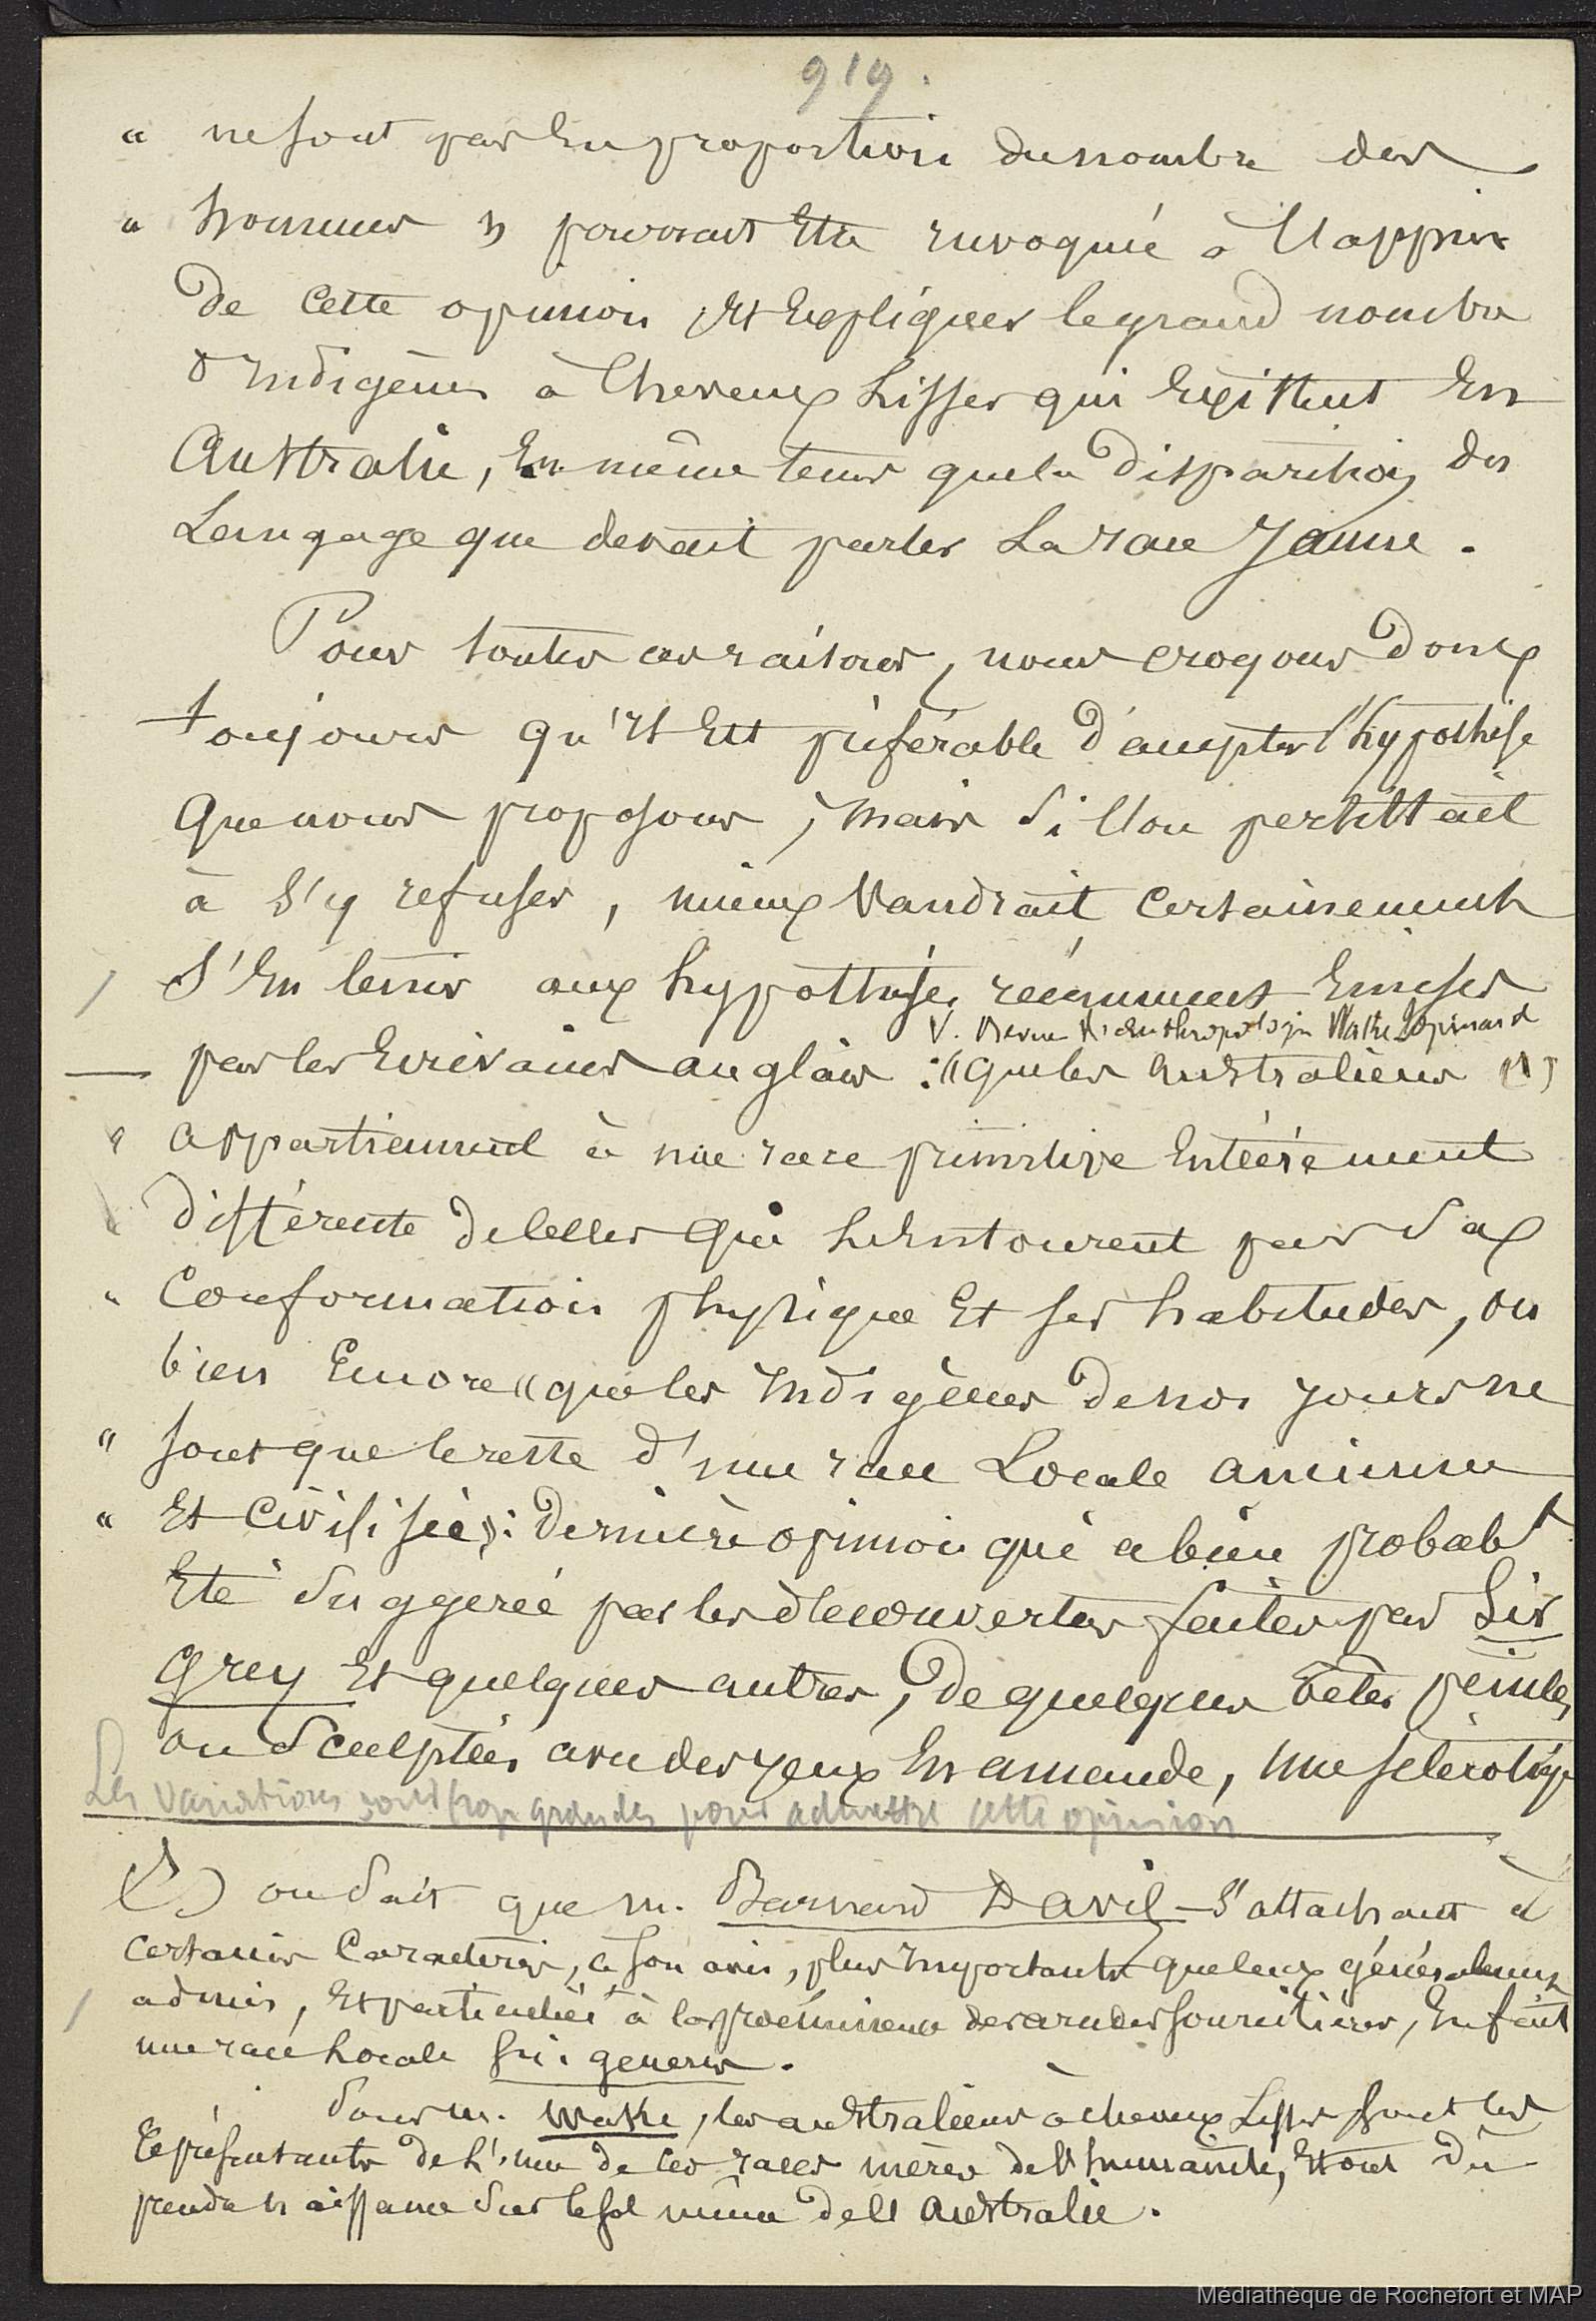 919.
" ne sont pas en proportion du nombre des
" hommes » pourrait être invoquée à l'appui
de cette opinion et expliquer le grand nombre
d'indigènes à cheveux lisses qui existent en
Australie, en même tems que la disparition du
langage que devait parler la race jaune.
Pour toutes ces raisons, nous croyons donc
toujours qu'il est préférable d'accepter l'hypothèse
que nous proposons ; mais si l'on persistait
à s'y refuser, mieux vaudrait certainement
s'en tenir aux hypothèses récemment émises
V. Revue d'anthropologie Wake Topinard
par les écrivains anglais : « que les australiens (1)
" appartiennent à une race primitive entièrement
" différente de celles qui l'entourent par sa
" conformation physique et ses habitudes, ou
bien encore « que les indigènes de nos jours ne
" sont que le reste d'une race locale ancienne
" et civilisée » : dernière opinion qui a bien probabt
été suggérée par les découvertes faites par Sir
Grey et quelques autres, de quelques têtes peintes
ou sculptées avec des yeux en amande, une sclérotique
Les variations sont trop grandes pour admettre cette opinion
(1) on sait que m. Barnard Davis s'attachant à
certains caractères, à son avis, plus importants que ceux généralement
admis, et particulièrt à la proéminence des arcades sourcilières, en fait
une race locale sui generis.
Pour m. Wake, les australiens à cheveux lisses sont les
représentants de l'une de ces races mères de l'humanité, et ont dû
prendre naissance sur le sol même de l'Australie.
Médiathèque de Rochefort et MAP